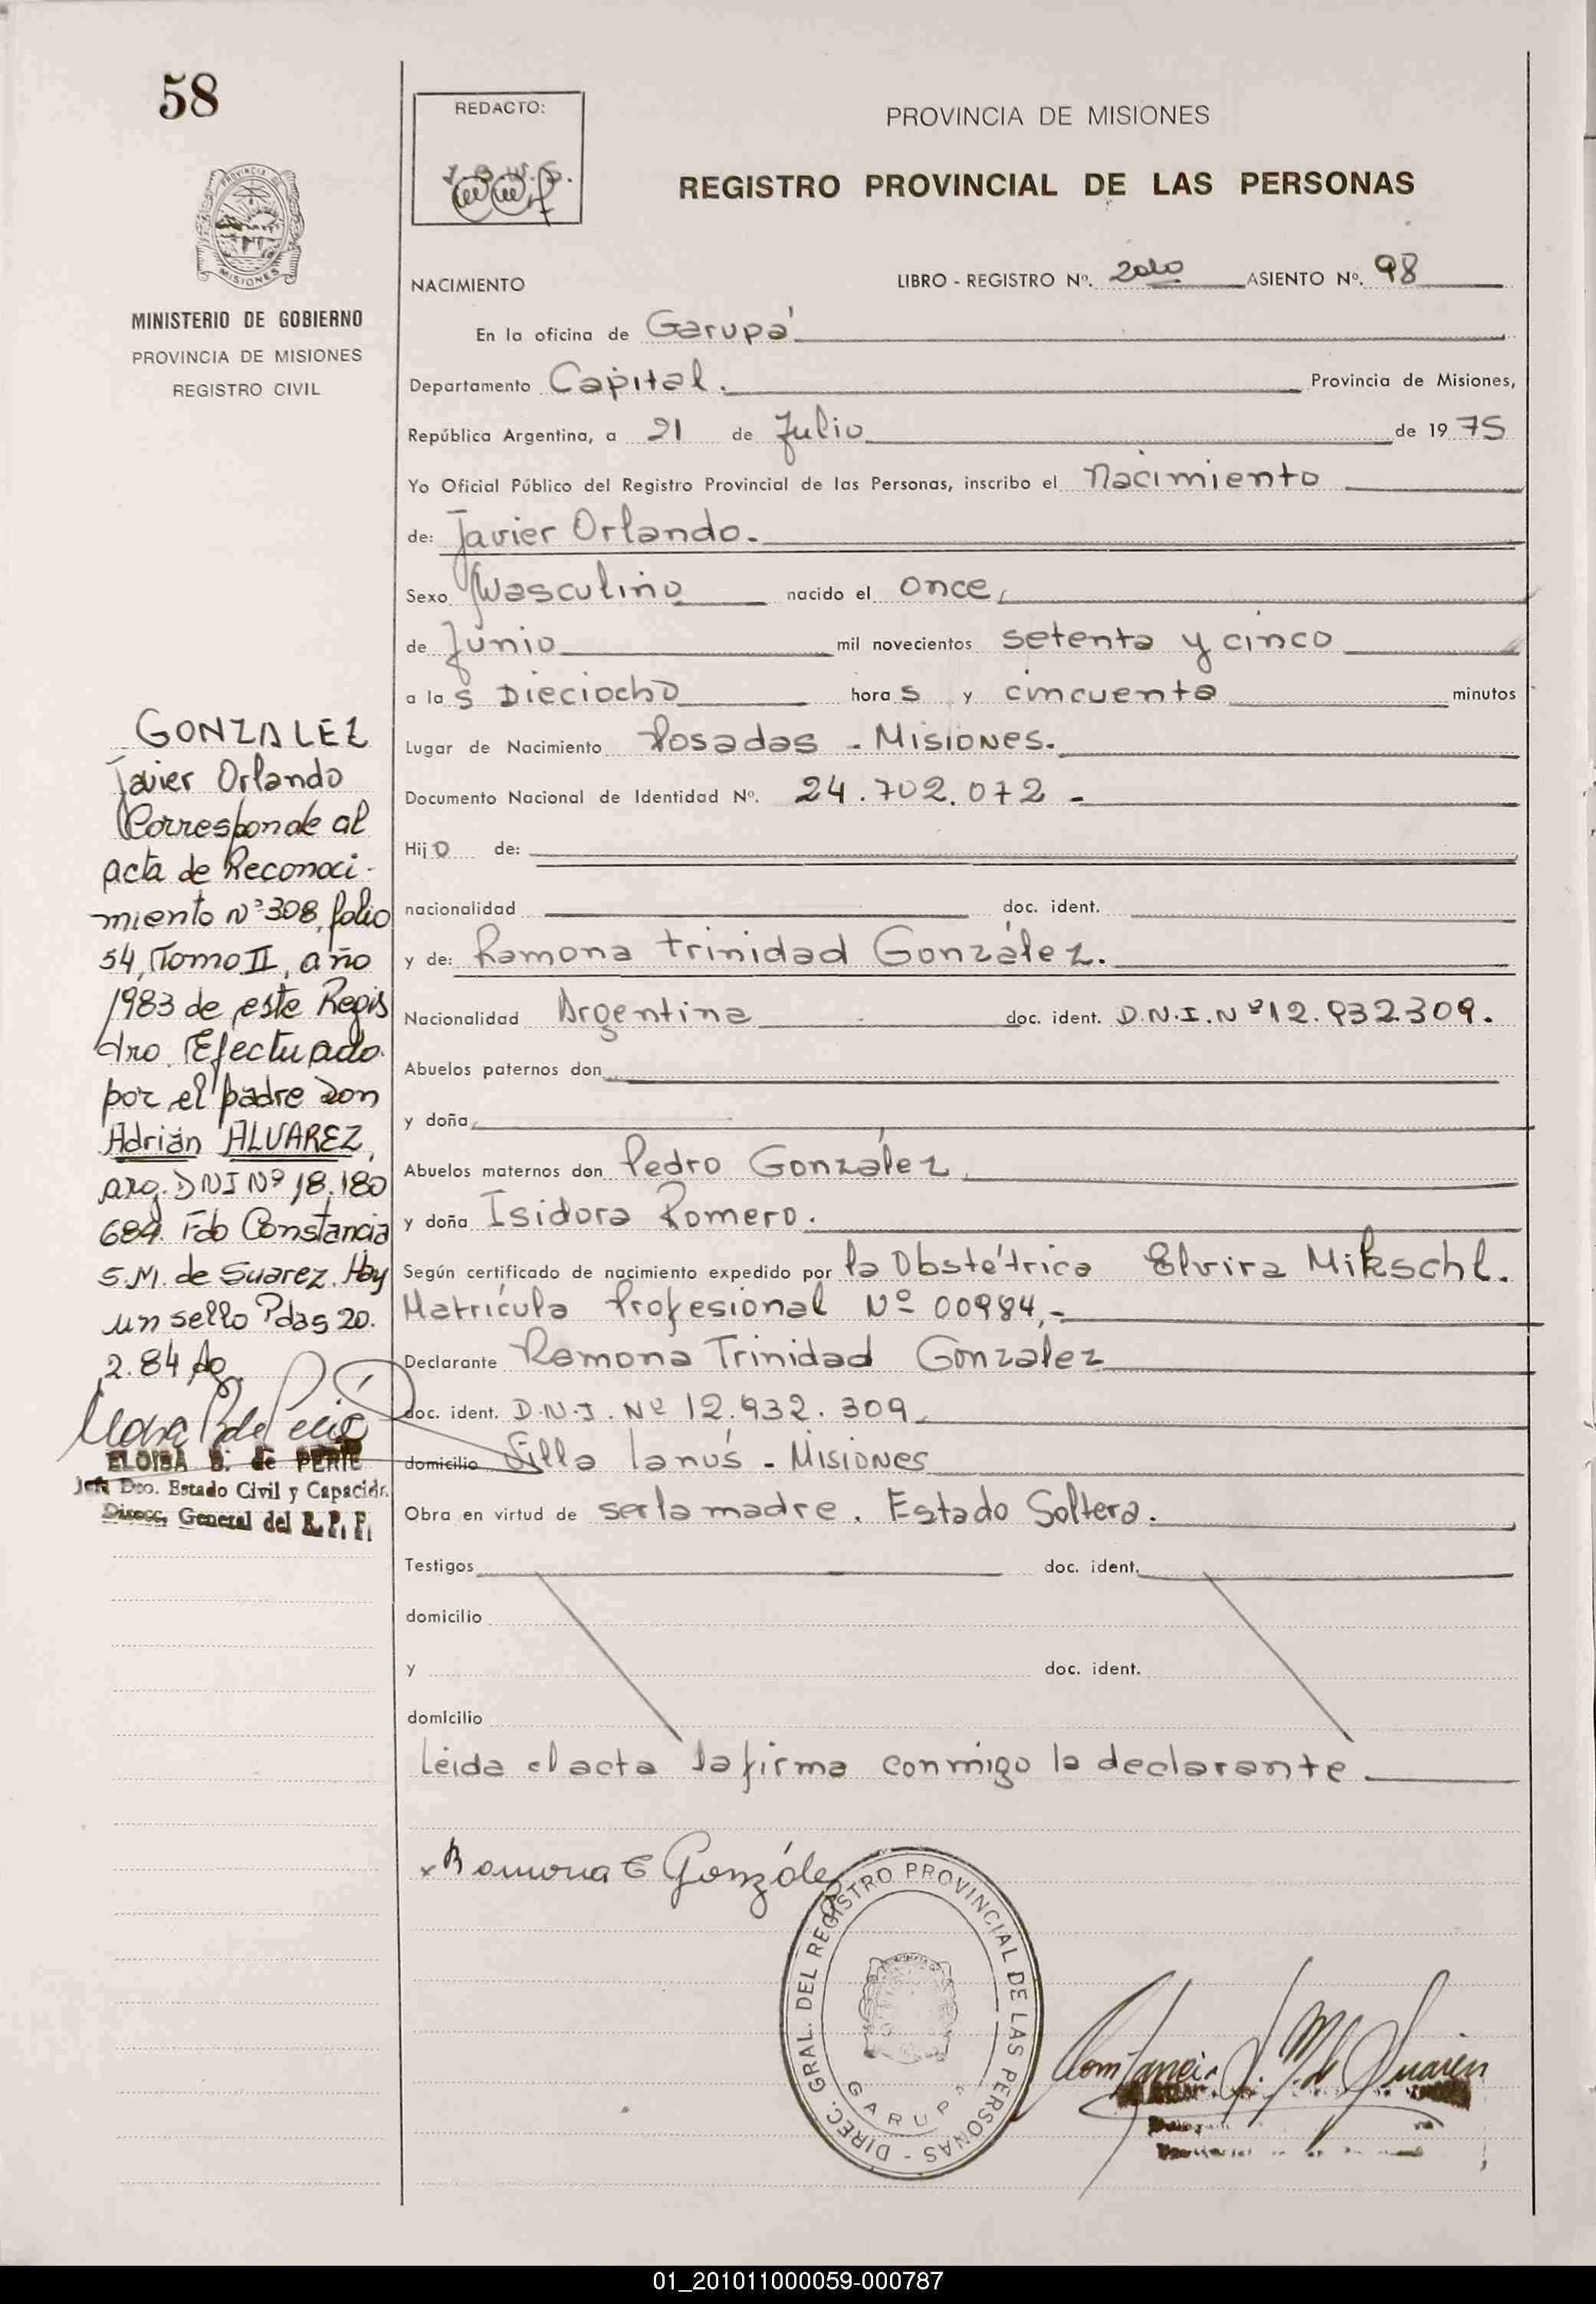 58
MINISTERIO DE GOBIERNO
PROVINCIA DE MISIONES
REGISTRO CIVIL
REDACTO:
PROVINCIA DE MISIONES
REGISTRO PROVINCIAL DE LAS PERSONAS
NACIMIENTO LIBRO - REGISTRO Nº. ASIENTO Nº. 98
En la oficina de Garupá
Departamento Capital. Provincia de Misiones,
República Argentina, a 21 de Julio de 1975
Yo Oficial Público del Registro Provincial de las Personas, inscribo el Nacimiento
de: Javier Orlando.
Sexo Masculino nacido el once,
de Junio mil novecientos setenta y cinco
a la s Dieciocho hora s y cincuenta minutos
Lugar de Nacimiento Posadas - Misiones.
Documento Nacional de Identidad Nº. 24.702.072 -
Hijo de:
nacionalidad doc. ident.
y de: Ramona trinidad González.
Nacionalidad Argentina doc. ident. D.N.I. Nº 12.932.309.
Abuelos paternos don
y doña
Abuelos maternos don Pedro González
y doña Isidora Romero.
Según certificado de nacimiento expedido por la Obstétrica Elvira Mikschl.
Matrícula Profesional Nº 00984,-
Declarante Ramona Trinidad Gonzalez
doc. ident. D.N.I. Nº 12.932.309
domicilio Villa Lanús - Misiones
Obra en virtud de ser la madre. Estado Soltera.
Testigos doc. ident.
domicilio
y doc. ident.
domicilio
Leida el acta la firma conmigo la declarante
x Ramona T González
DIREC. GRAL. DEL REGISTRO PROVINCIAL DE LAS PERSONAS -
GARUPA
Constancia S. M. de Suarez
GONZALEZ
Javier Orlando
Corresponde al
acta de Reconoci-
miento Nº 308, folio
54, Tomo II, año
1983 de este Regis
tro. Efectuado
por el padre Don
Adrián ALVAREZ,
arg. DNI Nº 18.180
689. Fdo Constancia
S.M. de Suarez. Hay
un sello Pdas 20.
2.84
ELOISA B. de PERIE
Jefe Dto. Estado Civil y Capacidr.
Direcc. General del R. P. P.
01_201011000059-000787